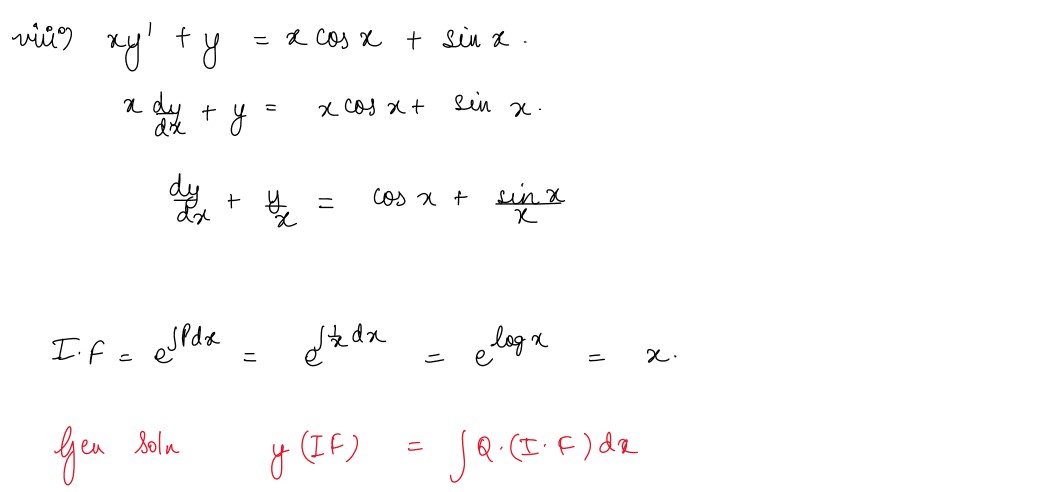 viii) xy' + y = x cos x + sin x.
x dy/dx + y = x cos x + sin x.
dy/dx + y/x = cos x + sin x/x
I.F = e^∫Pdx = e^∫1/x dx = e^log x = x.
Gen soln y (IF) = ∫Q.(I.F) dx